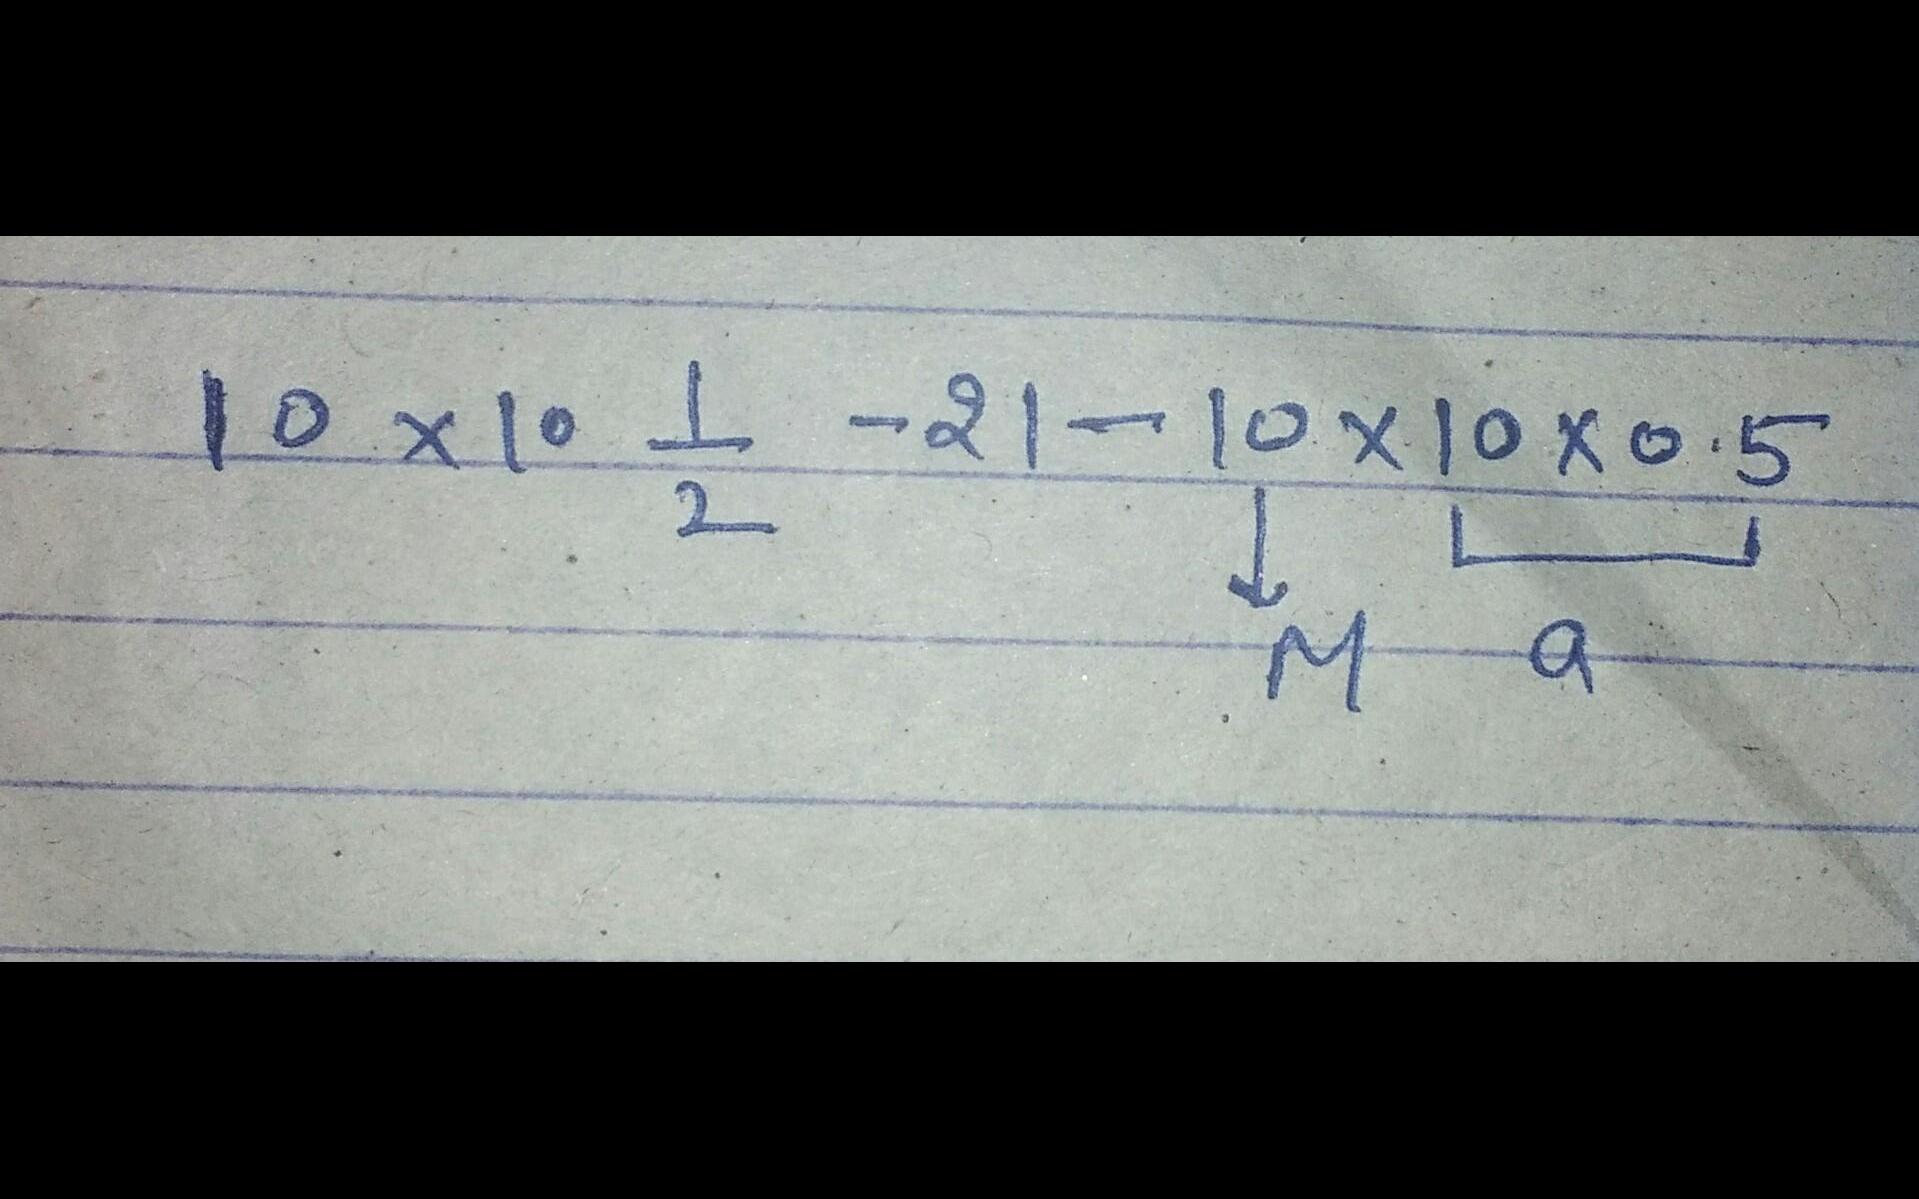 10 × 10 1/2 - 21 - 10 × 10 × 0.5
M a